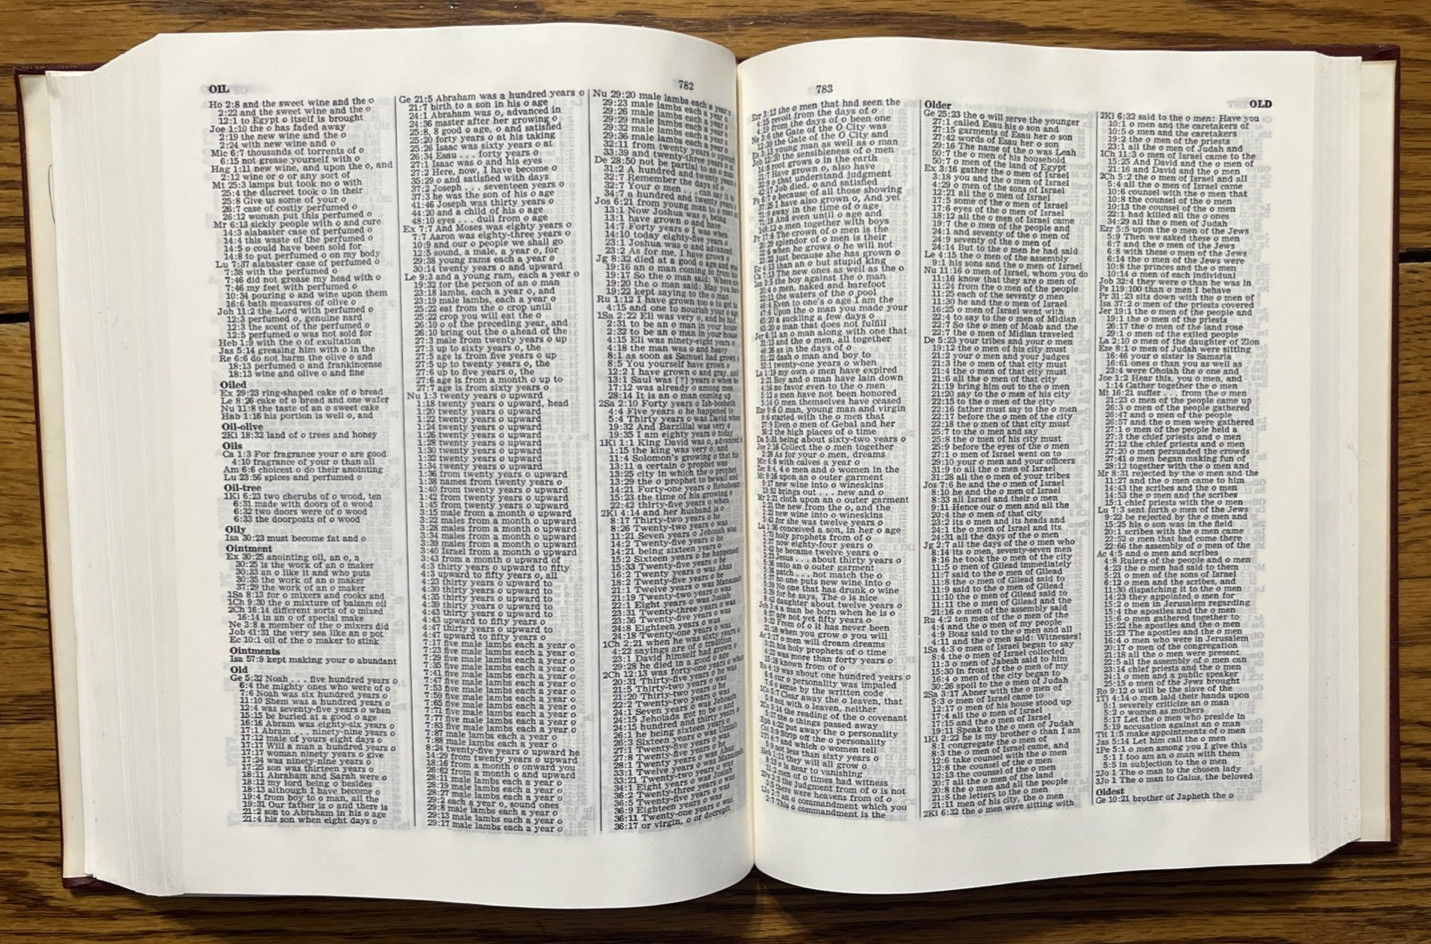 OIL
782
Ho 2:8 and the sweet wine and the o
2:22 and the sweet wine and the o
12:1 to Egypt o itself is brought
Joe 1:10 the o has faded away
2:19 the new wine and the o
2:24 with new wine and o
Mic 6:7 thousands of torrents of o
6:15 not grease yourself with o
Hag 1:11 new wine, and upon the o, and
2:12 wine or o or any sort of
Mt 25:3 lamps but took no o with
25:4 the discreet took o in their
25:8 Give us some of your o
26:7 case of costly perfumed o
26:12 woman put this perfumed o
Mr 6:13 sickly people with o and cure
14:3 alabaster case of perfumed o
14:4 this waste of the perfumed o
14:5 o could have been sold for
14:8 to put perfumed o on my body
Lu 7:37 alabaster case of perfumed o
7:38 with the perfumed o
7:46 did not grease my head with o
7:46 my feet with perfumed o
10:34 pouring o and wine upon them
16:6 bath measures of olive o
Joh 11:2 the Lord with perfumed o
12:3 perfumed o, genuine nard
12:3 the scent of the perfumed o
12:5 perfumed o was not sold for
Heb 1:9 with the o of exultation
Jas 5:14 greasing him with o in the
Re 6:6 do not harm the olive o and
18:13 perfumed o and frankincense
18:13 wine and olive o and fine
Oiled
Ex 29:23 ring-shaped cake of o bread
Le 8:26 cake of o bread and one wafer
Nu 11:8 the taste of an o sweet cake
Hab 1:16 his portion is well o, and
Oil-olive
2Ki 18:32 land of o trees and honey
Oils
Ca 1:3 For fragrance your o are good
4:10 fragrance of your o than all
Am 6:6 choicest o do their anointing
Lu 23:56 spices and perfumed o
Oil-tree
1Ki 6:23 two cherubs of o wood, ten
6:31 made with doors of o wood
6:32 two doors were of o wood
6:33 the doorposts of o wood
Oily
Isa 30:23 must become fat and o
Ointment
Ex 30:25 anointing oil, an o, a
30:25 is the work of an o maker
30:33 an o like it and who puts
30:35 the work of an o maker
37:29 the work of an o maker
1Sa 8:13 for o mixers and cooks and
1Ch 9:30 the o mixture of balsam oil
2Ch 16:14 different sorts of o mixed
16:14 in an o of special make
Ne 3:8 a member of the o mixers did
Job 41:31 the very sea like an o pot
Ec 10:1 oil of the o maker to stink
Ointments
Isa 57:9 kept making your o abundant
Old
Ge 5:32 Noah . . . five hundred years o
6:4 the mighty ones who were of o
7:6 Noah was six hundred years o
11:10 Shem was a hundred years o
12:4 was seventy-five years o when
15:15 be buried at a good o age
16:16 Abram was eighty-six years o
17:1 Abram . . . ninety-nine years o
17:12 male of yours eight days o
17:17 Will a man a hundred years o
17:17 woman ninety years o give
17:24 was ninety-nine years o
17:25 son was thirteen years o
18:11 Abraham and Sarah were o
18:12 my lord being o besides
18:13 although I have become o
19:4 from boy to o man, all the
19:31 Our father is o and there is
21:2 son to Abraham in his o age
21:4 his son when eight days o
Ge 21:5 Abraham was a hundred years o
21:7 birth to a son in his o age
24:1 Abraham was o, advanced in
24:36 master after her growing o
25:8, 8 good o age, o and satisfied
25:20 forty years o at his taking
25:26 Isaac was sixty years o at
26:34 Esau . . . forty years o
27:1 Isaac was o and his eyes
27:2 Here, now, I have become o
35:29 o and satisfied with days
37:2 Joseph . . . seventeen years o
37:3 he was the son of his o age
41:46 Joseph was thirty years o
44:20 and a child of his o age
48:10 eyes . . . dull from o age
Ex 7:7 And Moses was eighty years o
7:7 Aaron was eighty-three years o
10:9 and our o people we shall go
12:5 sound, a male, a year o, for
29:38 young rams each a year o
30:14 twenty years o and upward
Le 9:3 and a young ram, each a year o
19:32 for the person of an o man
23:18 lambs, each a year o, and
23:19 male lambs, each a year o
25:22 eat from the o crop until
25:22 crop you will eat the o
26:10 o of the preceding year, and
26:10 bring out the o ahead of the
27:3 male from twenty years o up
27:3 up to sixty years o, the
27:5 age is from five years o up
27:5 up to twenty years o, the
27:6 up to five years o, the
27:6 age is from a month o up to
27:7 age is from sixty years o
Nu 1:3 twenty years o upward
1:18 twenty years o upward, head
1:20 twenty years o upward
1:22 twenty years o upward
1:24 twenty years o upward
1:26 twenty years o upward
1:28 twenty years o upward
1:30 twenty years o upward
1:32 twenty years o upward
1:34 twenty years o upward
1:36 from twenty years o upward
1:38 names from twenty years o
1:40 from twenty years o upward
1:42 from twenty years o upward
1:45 from twenty years o upward
3:15 male from a month o upward
3:22 males from a month o upward
3:28 males from a month o upward
3:34 males from a month o upward
3:39 males from a month o upward
3:40 Israel from a month o upward
3:43 from a month o upward of
4:3 thirty years o upward to fifty
4:3 upward to fifty years o, all
4:23 thirty years o upward to
4:30 thirty years o upward to
4:35 thirty years o upward to
4:39 thirty years o upward to
4:43 upward to fifty years o
4:47 thirty years o upward to
4:47 upward to fifty years o
7:17 five male lambs each a year o
7:23 five male lambs each a year o
7:29 five male lambs each a year o
7:35 five male lambs each a year o
7:41 five male lambs each a year o
7:47 five male lambs each a year o
7:53 five male lambs each a year o
7:59 five male lambs each a year o
7:65 five male lambs each a year o
7:71 five male lambs each a year o
7:77 five male lambs each a year o
7:83 five male lambs each a year o
7:87 male lambs each a year o
7:88 male lambs each a year o
8:24 twenty-five years o upward he
14:29 from twenty years o upward
18:16 from a month o onward you
26:62 from a month o and upward
28:11 male lambs each a year o
28:19 male lambs each a year o
28:27 male lambs each a year o
29:2 each a year o, sound ones
29:8 male lambs each a year o
29:13 male lambs each a year o
29:17 male lambs each a year o
Nu 29:20 male lambs each a year o
29:23 male lambs each a year
29:26 male lambs each a year
29:29 male lambs each a year
29:32 male lambs each a year
29:36 male lambs each a year
32:11 from twenty years o
33:39 and twenty-three years
De 28:50 not be partial to an o man
31:2 A hundred and twenty years
32:7 Remember the days of
32:7 Your o men . . . can say
34:7 a hundred and twenty
Jos 6:21 from young man to o
13:1 Now Joshua was o, being
13:1 have grown o and
14:7 Forty years o I was when
14:10 today eighty-five years o
23:1 Joshua was o and
23:2 As for me, I have grown o
Jg 8:32 died at a good o age and
19:16 an o man coming in from
19:17 So the o man said: Where
19:20 the o man said: May
19:22 kept saying to the o man
Ru 1:12 I have grown too o to get
4:15 and one to nourish your o age
1Sa 2:22 Eli was very o, and he had
2:31 to be an o man in your house
2:32 to be an o man in your house
4:15 Eli was ninety-eight years
4:18 the man was o and heavy
8:1 as soon as Samuel had grown
8:5 You yourself have grown
12:2 I have grown o and gray
13:1 Saul was [?] years o when
17:12 was already o among men
28:14 It is an o man coming up
2Sa 2:10 Forty years o Ish-bosheth
4:4 Five years o he happened to
5:4 Thirty years o was David when
19:32 And Barzillai was very
19:35 I am eighty years o today
1Ki 1:1 King David was o, advanced
1:15 the king was very o, and
11:4 Solomon's growing o that his
13:11 a certain o prophet was
13:25 city in which the o prophet
13:29 the o prophet to bewail and
14:21 Forty-one years o Rehoboam
15:23 the time of his growing
22:42 thirty-five years o when
2Ki 4:14 and her husband is
8:17 Thirty-two years o he
8:26 Twenty-two years o was
11:21 Seven years o Jehoash was
14:2 Twenty-five years o he
14:21 being sixteen years o
15:2 Sixteen years o he happened
15:33 Twenty-five years o he
16:2 Twenty years o was Ahaz
18:2 Twenty-five years o he
21:1 Twelve years o was Manasseh
21:19 Twenty-two years o was
22:1 Eight years o was Josiah
23:31 Twenty-three years o was
23:36 Twenty-five years o
24:8 Eighteen years o was
24:18 Twenty-one years o
1Ch 2:21 when he was sixty years
4:22 sayings are of o tradition
23:1 David himself had grown
29:28 he died in a good o age
2Ch 12:13 was forty-one years o when
20:31 Thirty-five years o
21:5 Thirty-two years o
21:20 Thirty-two years o
22:2 Twenty-two years o
24:1 Seven years o was Jehoash
24:15 Jehoiada got to be o
24:15 hundred and thirty years
26:1 he being sixteen years
26:3 Sixteen years o was Uzziah
27:1 Twenty-five years o
27:8 Twenty-five years o he
28:1 Twenty years o was
33:1 Twelve years o was Manasseh
33:21 Twenty-two years o
34:1 Eight years o was Josiah
36:2 Twenty-three years o
36:5 Twenty-five years o
36:9 Eighteen years o was
36:11 Twenty-one years o
36:17 or virgin, o or decrepit
783
OLD
Ezr 3:12 the o men that had seen the
4:15 revolt from the days of o
4:19 from the days of o been one
Ne 3:6 the Gate of the O City was
12:39 the Gate of the O City and
young man as well as o man
12:20 the sensibleness of o men
root grows o in the earth
21:7 Have grown o, also have
o that understand judgment
42:17 Job died, o and satisfied
o because of all those showing
37:25 I have also grown o, And yet
71:9 away in the time of o age
71:18 And even until o age and
148:12 o men together with boys
Pr 17:6 The crown of o men is the
20:29 splendor of o men is their
22:6 when he grows o he will not
23:22 just because she has grown o
Ec 4:13 than an o but stupid king
Ca 7:13 The new ones as well as the o
Isa 3:5 the boy against the o man
20:4 man, naked and barefoot
22:11 the waters of the o pool
46:4 Even to one's o age I am the
47:6 Upon the o man you made your
65:20 a suckling a few days o
65:20 o man that does not fulfill
Jer 6:11 an o man along with one that
31:13 and the o men, all together
46:26 as in the days of o
51:22 dash o man and boy to
52:1 twenty-one years o when
La 1:19 my own o men have expired
2:21 Boy and o man have lain down
4:16 no favor even to the o men
5:12 o men have not been honored
5:14 o men themselves have ceased
Eze 9:6 O man, young man and virgin
9:6 started with the o men that
27:9 Even o men of Gebal and her
36:2 the high places of o time
Da 5:31 being about sixty-two years o
Joe 2:16 Collect the o men together
2:28 As for your o men, dreams
Mic 6:6 with calves a year o
Zec 8:4 o men and o women in the
Mt 9:16 upon an o outer garment
9:17 new wine into o wineskins
13:52 brings out . . . new and o
Mr 2:21 cloth upon an o outer garment
2:21 the new from the o, and the
2:22 new wine into o wineskins
5:42 for she was twelve years o
Lu 1:36 conceived a son, in her o age
1:70 holy prophets from of o
2:37 now eighty-four years o
2:42 he became twelve years o
3:23 Jesus . . . about thirty years o
5:36 onto an o outer garment
5:36 patch . . . not match the o
5:37 no one puts new wine into o
5:39 No one that has drunk o wine
5:39 for he says, The o is nice
8:42 daughter about twelve years o
Joh 3:4 a man be born when he is o
8:57 are not yet fifty years o
9:32 From of o it has never been
21:18 when you grow o you will
Ac 2:17 o men will dream dreams
3:21 his holy prophets of o time
4:22 was more than forty years o
15:18 known from of o
Ro 4:19 was about one hundred years o
6:6 our o personality was impaled
7:6 o sense by the written code
1Co 5:7 Clear away the o leaven, that
5:8 not with o leaven, neither
2Co 3:14 the reading of the o covenant
5:17 the o things passed away
Eph 4:22 put away the o personality
Col 3:9 Strip off the o personality
1Ti 4:7 and which o women tell
5:9 not less than sixty years o
Heb 1:11 they will all grow o
8:13 o is near to vanishing
11:2 men of o times had witness
2Pe 2:3 the judgment from of o is not
3:5 there were heavens from of o
1Jo 2:7 an o commandment which you
2:7 This o commandment is the
Older
Ge 25:23 the o will serve the younger
27:1 called Esau his o son and
27:15 garments of Esau her o son
27:42 words of Esau her o son
29:16 The name of the o was Leah
50:7 the o men of his household
50:7 o men of the land of Egypt
Ex 3:16 gather the o men of Israel
3:18 you and the o men of Israel
4:29 o men of the sons of Israel
12:21 all the o men of Israel
17:5 some of the o men of Israel
17:6 eyes of the o men of Israel
18:12 all the o men of Israel came
19:7 the o men of the people and
24:1 and seventy of the o men of
24:9 seventy of the o men of
24:14 But to the o men he had said
Le 4:15 the o men of the assembly
9:1 his sons and the o men of Israel
Nu 11:16 o men of Israel, whom you do
11:16 know that they are o men of
11:24 from the o men of the people
11:25 each of the seventy o men
11:30 he and the o men of Israel
16:25 o men of Israel went with
22:4 to say to the o men of Midian
22:7 So the o men of Moab and the
22:7 the o men of Midian traveled
De 5:23 your tribes and your o men
19:12 the o men of his city must
21:2 your o men and your judges
21:3 the o men of that city must
21:4 the o men of that city must
21:6 all the o men of that city
21:19 bring him out to the o men
21:20 say to the o men of his city
22:15 to the o men of the city
22:16 father must say to the o men
22:17 before the o men of the city
22:18 the o men of that city must
25:7 to the o men and say
25:8 the o men of his city must
25:9 before the eyes of the o men
27:1 o men of Israel went on to
29:10 your o men and your officers
31:9 to all the o men of Israel
31:28 all the o men of your tribes
Jos 7:6 he and the o men of Israel
8:10 he and the o men of Israel
8:33 all Israel and their o men
9:11 Hence our o men and all the
20:4 the o men of that city
23:2 its o men and its heads and
24:1 the o men of Israel and its
24:31 all the days of the o men
Jg 2:7 all the days of the o men who
8:14 its o men, seventy-seven men
8:16 he took the o men of the city
11:5 o men of Gilead immediately
11:7 said to the o men of Gilead
11:8 the o men of Gilead said to
11:9 said to the o men of Gilead
11:10 the o men of Gilead said to
11:11 the o men of Gilead and the
21:16 o men of the assembly said
Ru 4:2 ten men of the o men of the
4:4 and the o men of my people
4:9 Boaz said to the o men and all
4:11 and the o men said: Witnesses!
1Sa 4:3 o men of Israel began to say
8:4 the o men of Israel collected
11:3 o men of Jabesh said to him
15:30 in front of the o men of my
16:4 o men of the city began to
30:26 spoil to the o men of Judah
2Sa 3:17 Abner with the o men of
5:3 o men of Israel came to
12:17 o men of his house stood up
17:4 all the o men of Israel
17:15 and the o men of Israel
19:11 Speak to the o men of Judah
1Ki 2:22 he is my brother o than I am
8:1 congregate the o men of
8:3 the o men of Israel came, and
12:6 take counsel with the o men
12:8 the counsel of the o men
12:13 the counsel of the o men
20:7 all the o men of the land
20:8 all the o men and all people
21:8 the letters to the o men
21:11 men of his city, the o men
2Ki 6:32 the o men were sitting with
2Ki 6:32 said to the o men: Have you
10:1 o men and the caretakers of
10:5 o men and the caretakers
19:2 the o men of the priests
23:1 all the o men of Judah and
1Ch 11:3 o men of Israel came to the
15:25 And David and the o men of
21:16 and David and the o men
2Ch 5:2 the o men of Israel and all
5:4 all the o men of Israel came
10:6 counsel with the o men that
10:8 the counsel of the o men
10:13 the counsel of the o men
22:1 had killed all the o ones
34:29 all the o men of Judah
Ezr 5:5 upon the o men of the Jews
5:9 Then we asked these o men
6:7 and the o men of the Jews
6:8 with these o men of the Jews
6:14 the o men of the Jews were
10:8 the princes and the o men
10:14 o men of each individual
Job 32:4 they were o than he was in
Ps 119:100 than o men I behave
Pr 31:23 sits down with the o men of
Isa 37:2 o men of the priests covered
Jer 19:1 the o men of the people and
19:1 the o men of the priests
26:17 the o men of the land rose
29:1 o men of the exiled people
La 2:10 o men of the daughter of Zion
Eze 8:1 o men of Judah were sitting
16:46 your o sister is Samaria
16:61 ones o than you as well as
23:4 were Oholah the o one and
Joe 1:2 Hear this, you o men, and
1:14 Gather together the o men
Mt 16:21 suffer . . . from the o men
21:23 o men of the people came up
26:3 o men of the people gathered
26:47 and o men of the people
26:57 and the o men were gathered
27:1 o men of the people held a
27:3 the chief priests and o men
27:12 the chief priests and o men
27:20 o men persuaded the crowds
27:41 o men began making fun of
28:12 together with the o men and
Mr 8:31 rejected by the o men and the
11:27 and the o men came to him
14:43 the scribes and the o men
14:53 the o men and the scribes
15:1 chief priests with the o men
Lu 7:3 sent forth o men of the Jews
9:22 be rejected by the o men and
15:25 his o son was in the field
20:1 scribes with the o men came
22:52 o men that had come there
22:66 the assembly of o men of the
Ac 4:5 and o men and scribes
4:8 Rulers of the people and o men
4:23 the o men had said to them
5:21 o men of the sons of Israel
6:12 o men and the scribes, and
11:30 dispatching it to the o men
14:23 they appointed o men for
15:2 o men in Jerusalem regarding
15:4 the apostles and the o men
15:6 o men gathered together to
15:22 the apostles and the o men
15:23 The apostles and the o men
16:4 o men who were in Jerusalem
20:17 o men of the congregation
21:18 all the o men were present
22:5 all the assembly of o men can
23:14 chief priests and the o men
24:1 o men and a public speaker
25:15 o men of the Jews brought
Ro 9:12 o will be the slave of the
1Ti 4:14 o men laid their hands upon
5:1 severely criticize an o man
5:2 o women as mothers
5:17 Let the o men who preside in
5:19 accusation against an o man
Tit 1:5 make appointments of o men
Jas 5:14 Let him call the o men
1Pe 5:1 o men among you I give this
5:1 I too am an o man with them
5:5 in subjection to the o men
2Jo 1 The o man to the chosen lady
3Jo 1 The o man to Gaius, the beloved
Oldest
Ge 10:21 brother of Japheth the o